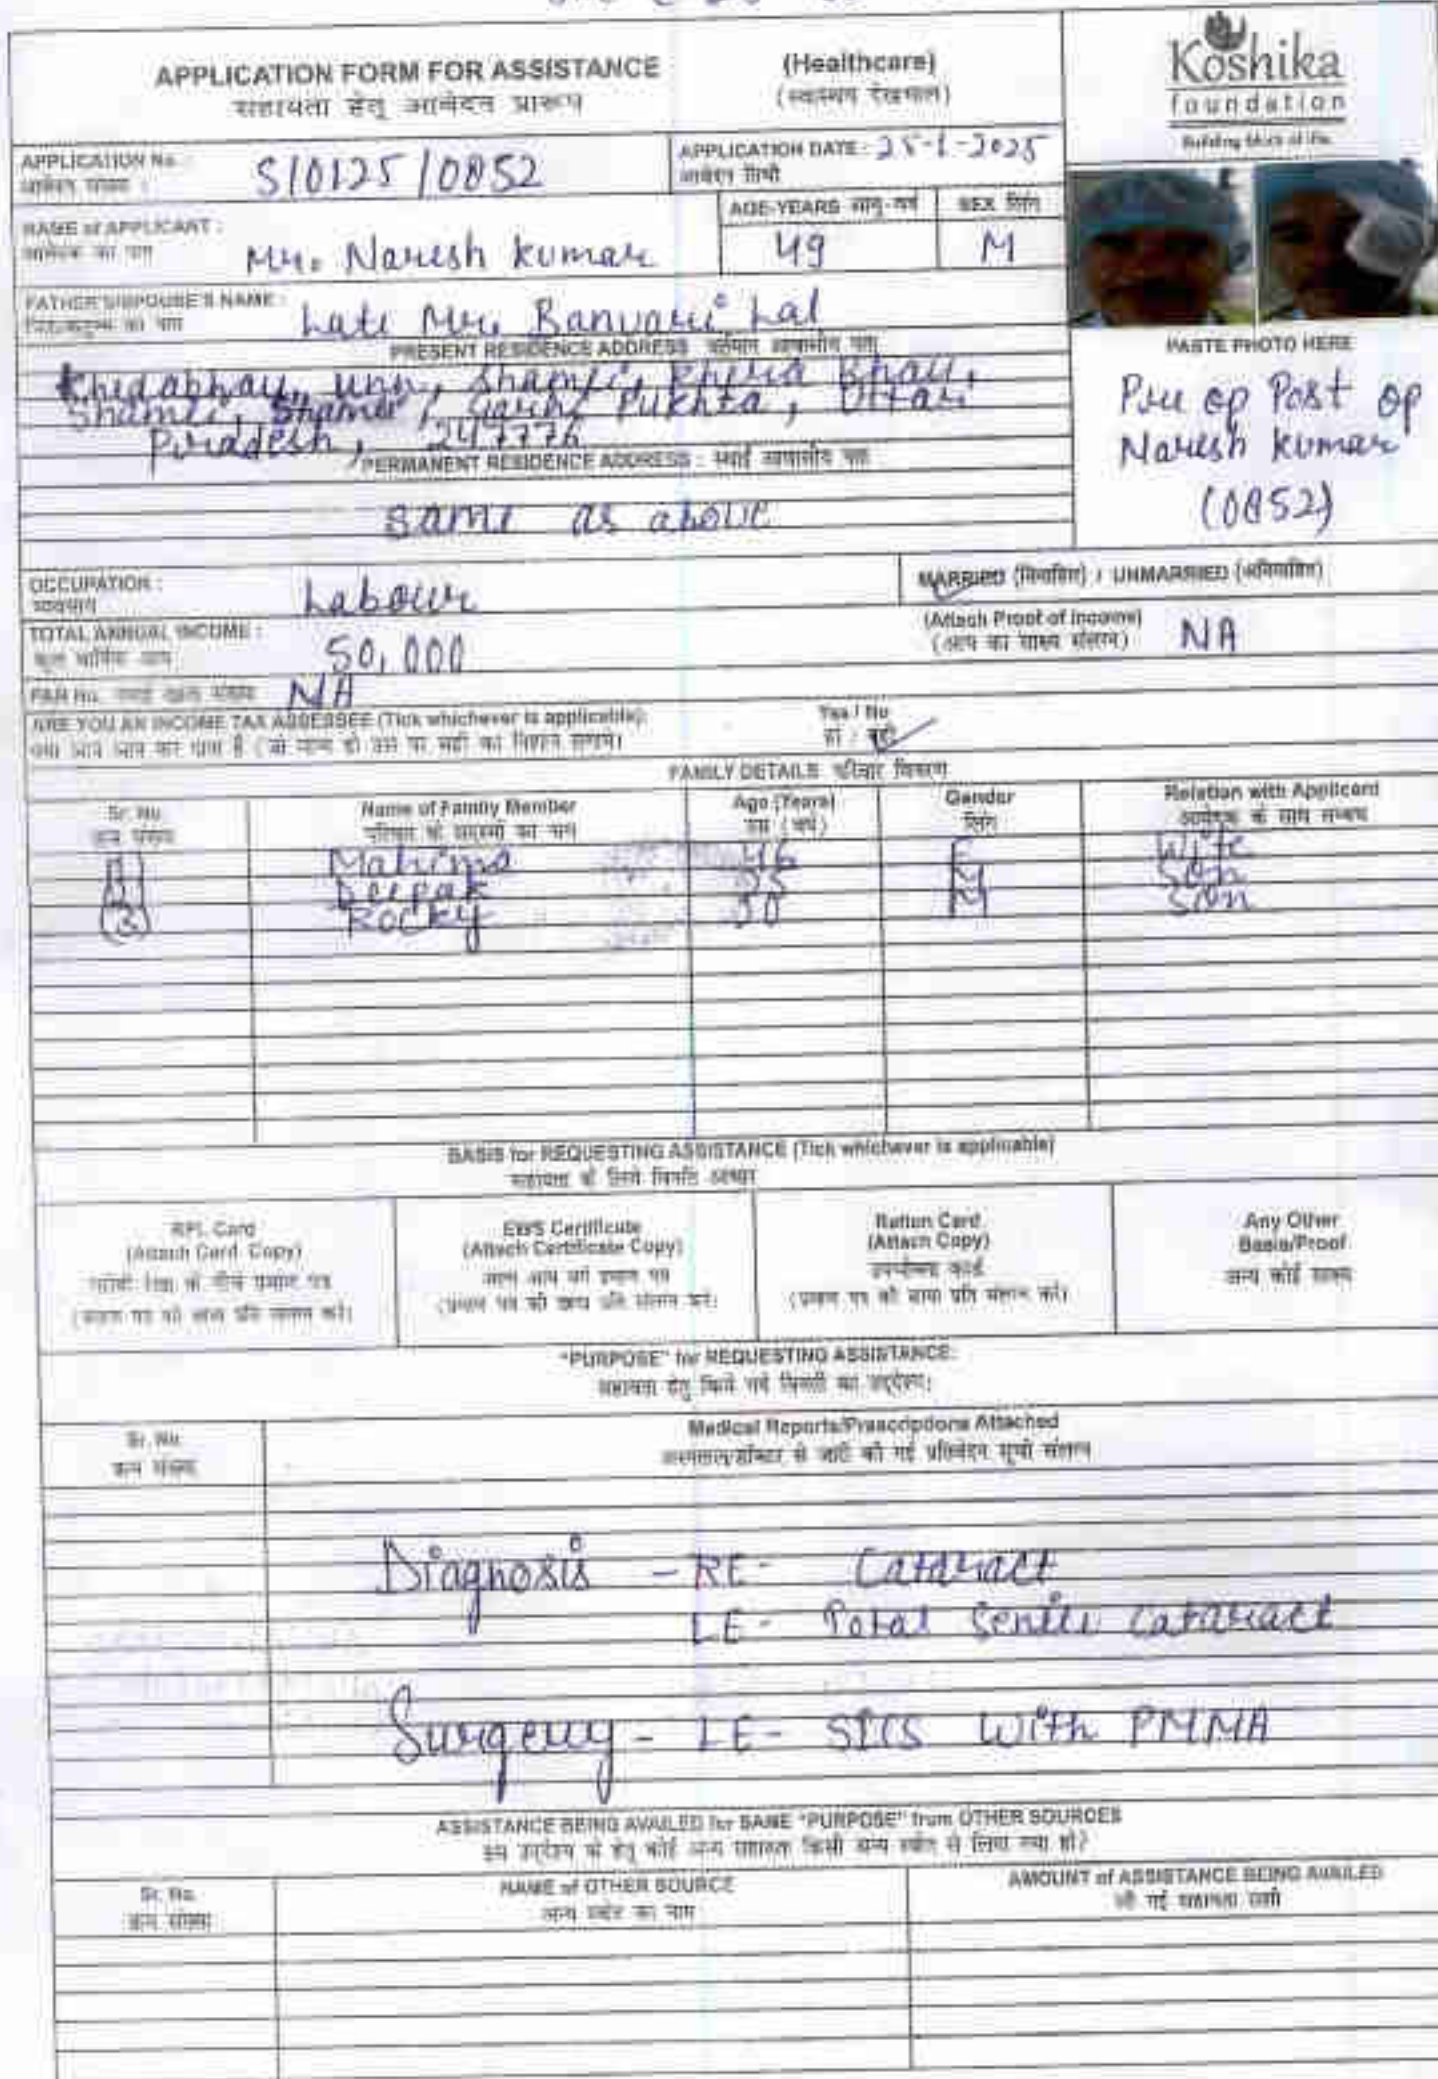 APPLICATION FORM FOR ASSISTANCE
सहायता हेतु आवेदन प्रारूप
(Healthcare)
(स्वास्थ्य देखभाल)
Koshika
foundation
Building block of life.
APPLICATION No. :
आवेदन संख्या :
S/0125/0852
APPLICATION DATE : 25-1-2025
आवेदन तिथी
NAME of APPLICANT :
आवेदक का नाम
Mr. Naresh kumar
AGE-YEARS आयु-वर्ष
49
SEX लिंग
M
FATHER'S/SPOUSE'S NAME :
Late Mr. Banvari Lal
PRESENT RESIDENCE ADDRESS वर्तमान आवासीय पता
Khidabhau, unn, Shamli, Khira Bhau,
Shamli, Shamli, Garhi Pukhta, Uttar
Pradesh, 247776
PERMANENT RESIDENCE ADDRESS : स्थाई आवासीय पता
same as above
PASTE PHOTO HERE
Pre op Post op
Naresh kumar
(0852)
OCCUPATION :
व्यवसाय
Labour
MARRIED (विवाहित) / UNMARRIED (अविवाहित)
TOTAL ANNUAL INCOME :
कुल वार्षिक आय
50,000
(Attach Proof of Income)
(आय का साक्ष्य संलग्न)
NA
PAN No. NA
ARE YOU AN INCOME TAX ASSESSEE (Tick whichever is applicable):
Yes / No
हां / नहीं
FAMILY DETAILS परिवार विवरण
Sr. No.
क्रम संख्या
Name of Family Member
परिवार के सदस्यों का नाम
Age (Years)
उम्र (वर्ष)
Gender
लिंग
Relation with Applicant
आवेदक के साथ सम्बंध
Mahima 46 F Wife
Deepak 25 M Son
(3) Rocky 20 M Son
BASIS for REQUESTING ASSISTANCE (Tick whichever is applicable)
सहायता के लिये विनति आधार
BPL Card
(Attach Card Copy)
EWS Certificate
(Attach Certificate Copy)
Ration Card
(Attach Copy)
Any Other
Basis/Proof
अन्य कोई साक्ष्य
"PURPOSE" for REQUESTING ASSISTANCE:
सहायता हेतु किये गये विनती का उद्देश्य:
Sr. No.
क्रम संख्या
Medical Reports/Prescriptions Attached
Diagnosis - RE- Cataract
LE- Total Senile Cataract
Surgery - LE- SICS With PMMA
ASSISTANCE BEING AVAILED for SAME "PURPOSE" from OTHER SOURCES
Sr. No.
क्रम संख्या
NAME of OTHER SOURCE
अन्य स्त्रोत का नाम
AMOUNT of ASSISTANCE BEING AVAILED
ली गई सहायता राशी